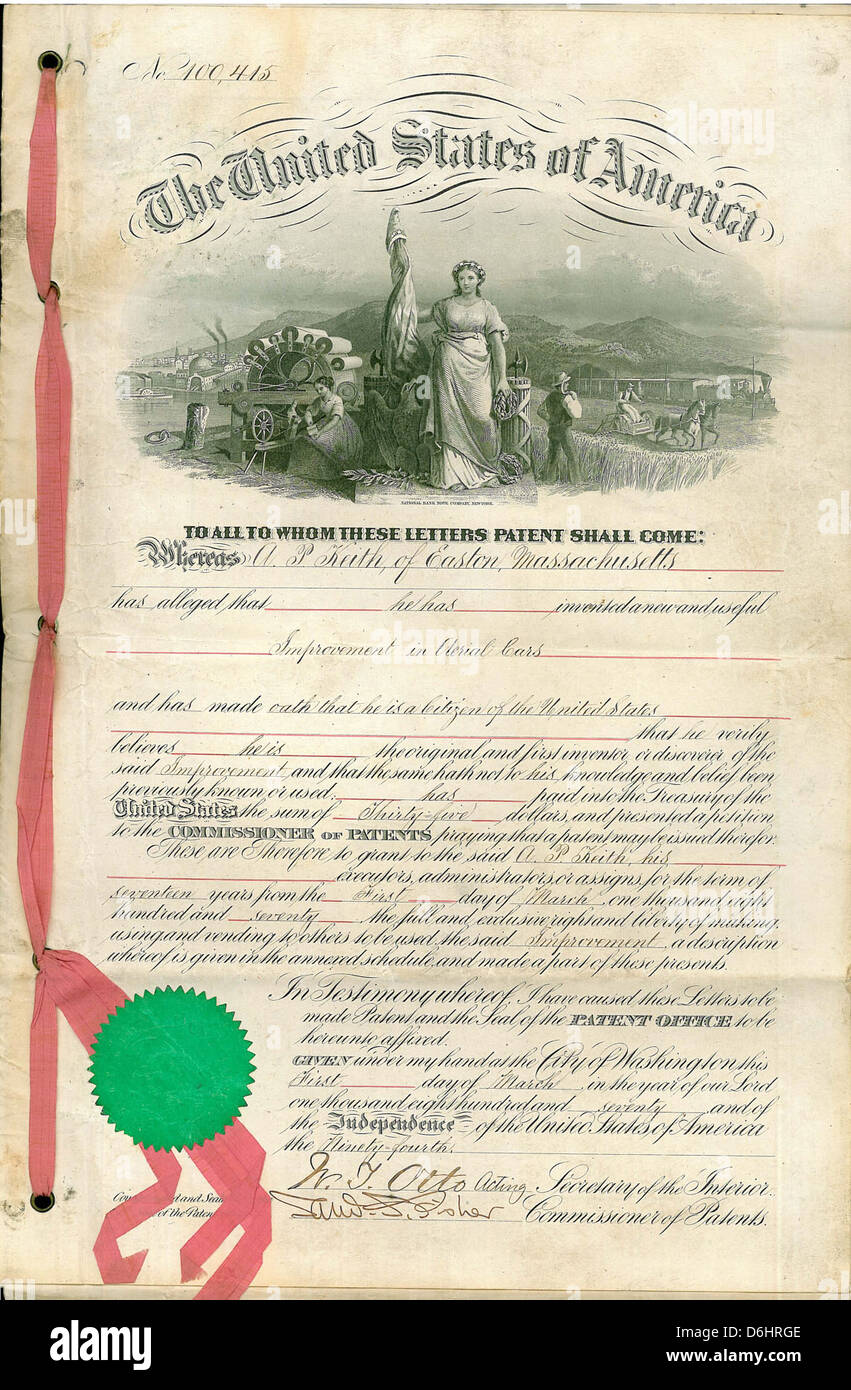 No. 100,415
The United States of America
NATIONAL BANK NOTE COMPANY, NEW YORK.
TO ALL TO WHOM THESE LETTERS PATENT SHALL COME:
Whereas A. P. Keith, of Easton, Massachusetts
has alleged that he has invented a new and useful
Improvement in Aerial Cars
and has made oath that he is a Citizen of the United States
that he verily
believes he is the original and first inventor or discoverer of the
said Improvement, and that the same hath not to his knowledge and belief been
previously known or used. has paid into the Treasury of the
United States the sum of Thirty-five dollars, and presented a petition
to the COMMISSIONER OF PATENTS praying that a patent may be issued therefor.
These are Therefore to grant to the said A. P. Keith, his
executors, administrators, or assigns, for the term of
seventeen years from the First day of March, one thousand eight
hundred and seventy the full and exclusive right and liberty of making,
using and vending to others to be used, the said Improvement, a description
whereof is given in the annexed schedule, and made a part of these presents.
In Testimony whereof, I have caused these Letters to be
made Patent and the Seal of the PATENT OFFICE to be
hereunto affixed.
GIVEN under my hand at the City of Washington this
First day of March in the year of our Lord
one thousand eight hundred and seventy and of
the Independence of the United States of America
the Ninety-fourth.
W. T. Otto Acting Secretary of the Interior.
Commissioner of Patents.
and Seal
of the Patent
alamy
Image ID: D6HRGE
www.alamy.com